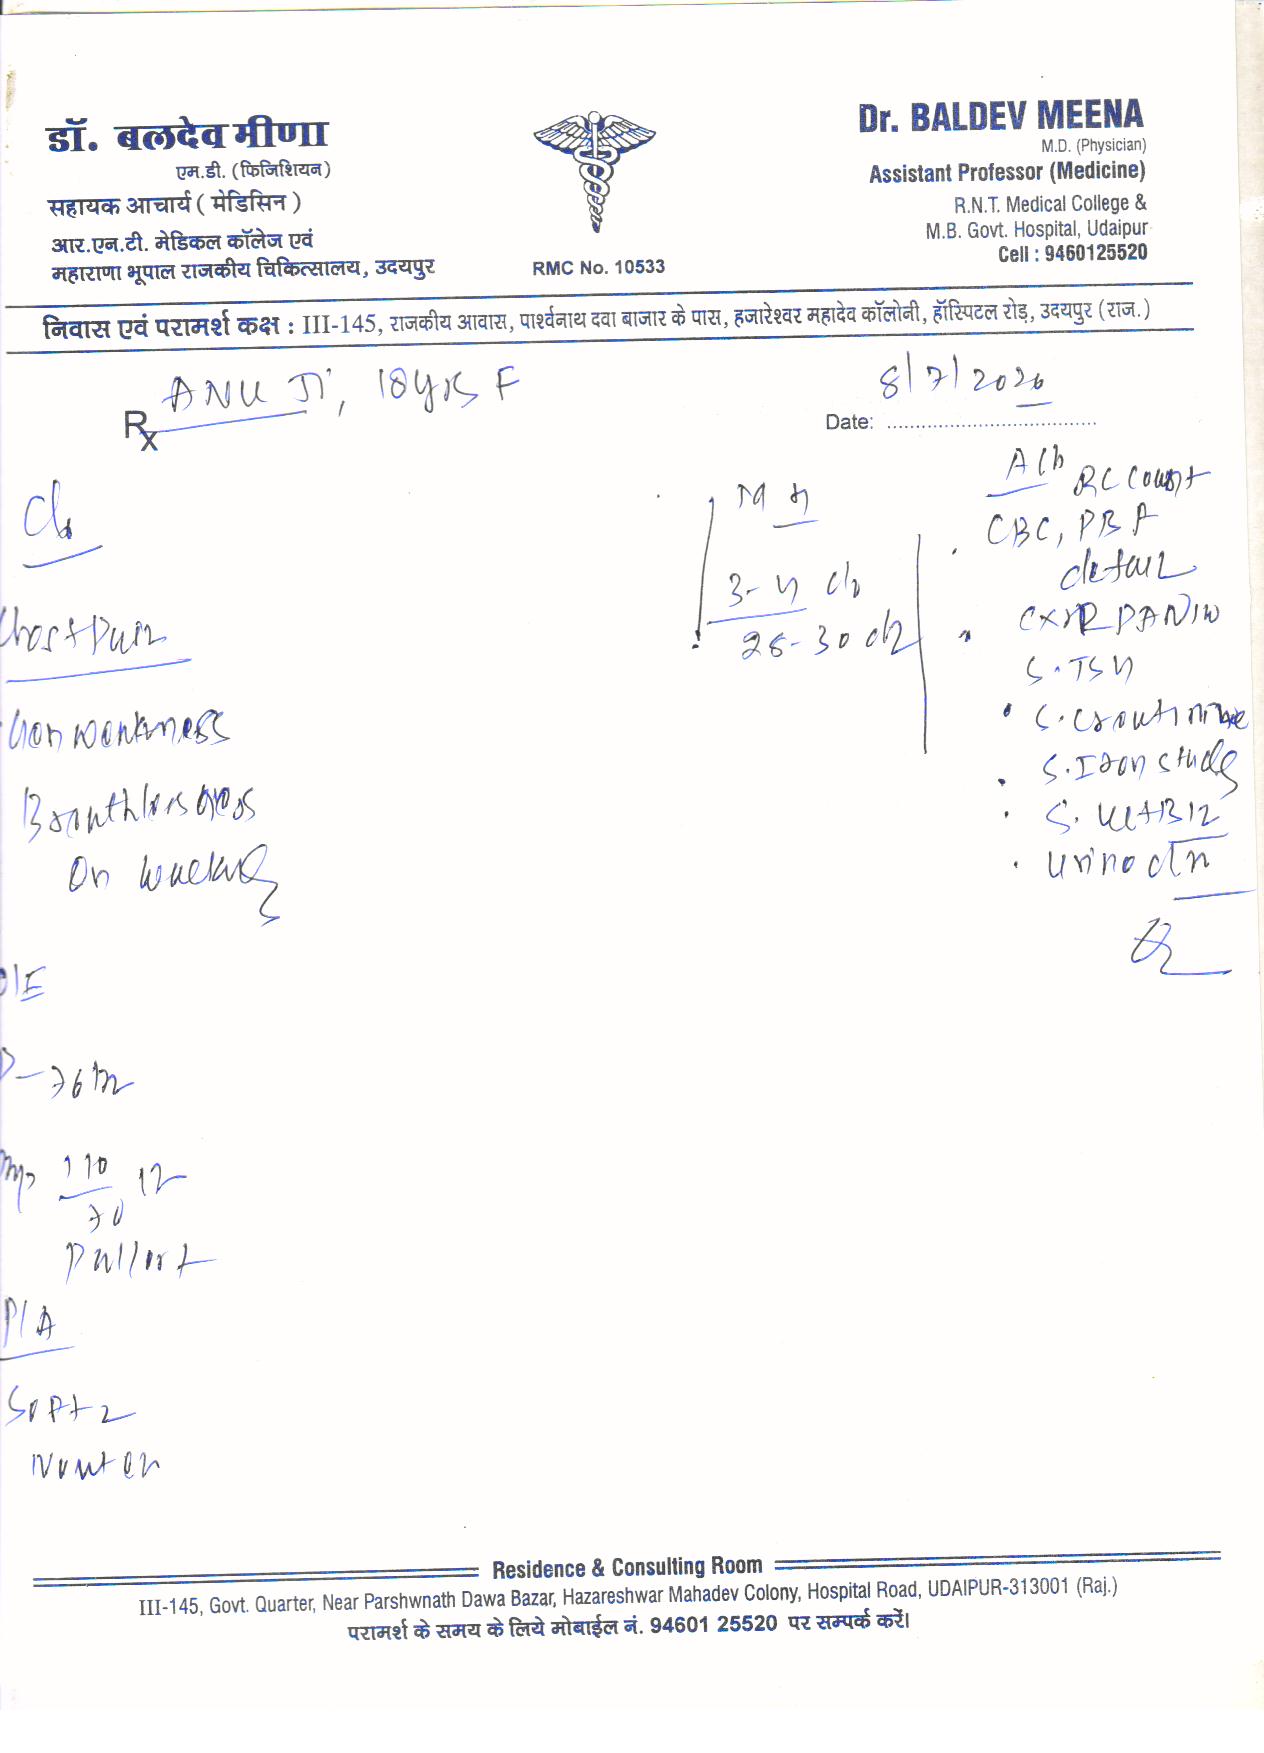 डॉ. बलदेव मीणा
एम.डी. (फिजिशियन)
सहायक आचार्य ( मेडिसिन )
आर.एन.टी. मेडिकल कॉलेज एवं
महाराणा भूपाल राजकीय चिकित्सालय, उदयपुर
RMC No. 10533
Dr. BALDEV MEENA
M.D. (Physician)
Assistant Professor (Medicine)
R.N.T. Medical College &
M.B. Govt. Hospital, Udaipur
Cell : 9460125520
निवास एवं परामर्श कक्ष : III-145, राजकीय आवास, पार्श्वनाथ दवा बाजार के पास, हजारेश्वर महादेव कॉलोनी, हॉस्पिटल रोड़, उदयपुर (राज.)
ANU JI, 18yrs F
Rx
8/7/2020
Date:
Chest Pain
Gen weakness
Breathlessness
On walking
O/E
P-76/m
110/70
Pallor +
P/A
Soft
M H
3-4 d
28-30 d
Adv
RC Count
CBC, PBF
detail
CXR PA view
S. TSH
S. Creatinine
S. Iron study
S. Vit B12
Urine
Residence & Consulting Room
III-145, Govt. Quarter, Near Parshwnath Dawa Bazar, Hazareshwar Mahadev Colony, Hospital Road, UDAIPUR-313001 (Raj.)
परामर्श के समय के लिये मोबाईल नं. 94601 25520 पर सम्पर्क करें।